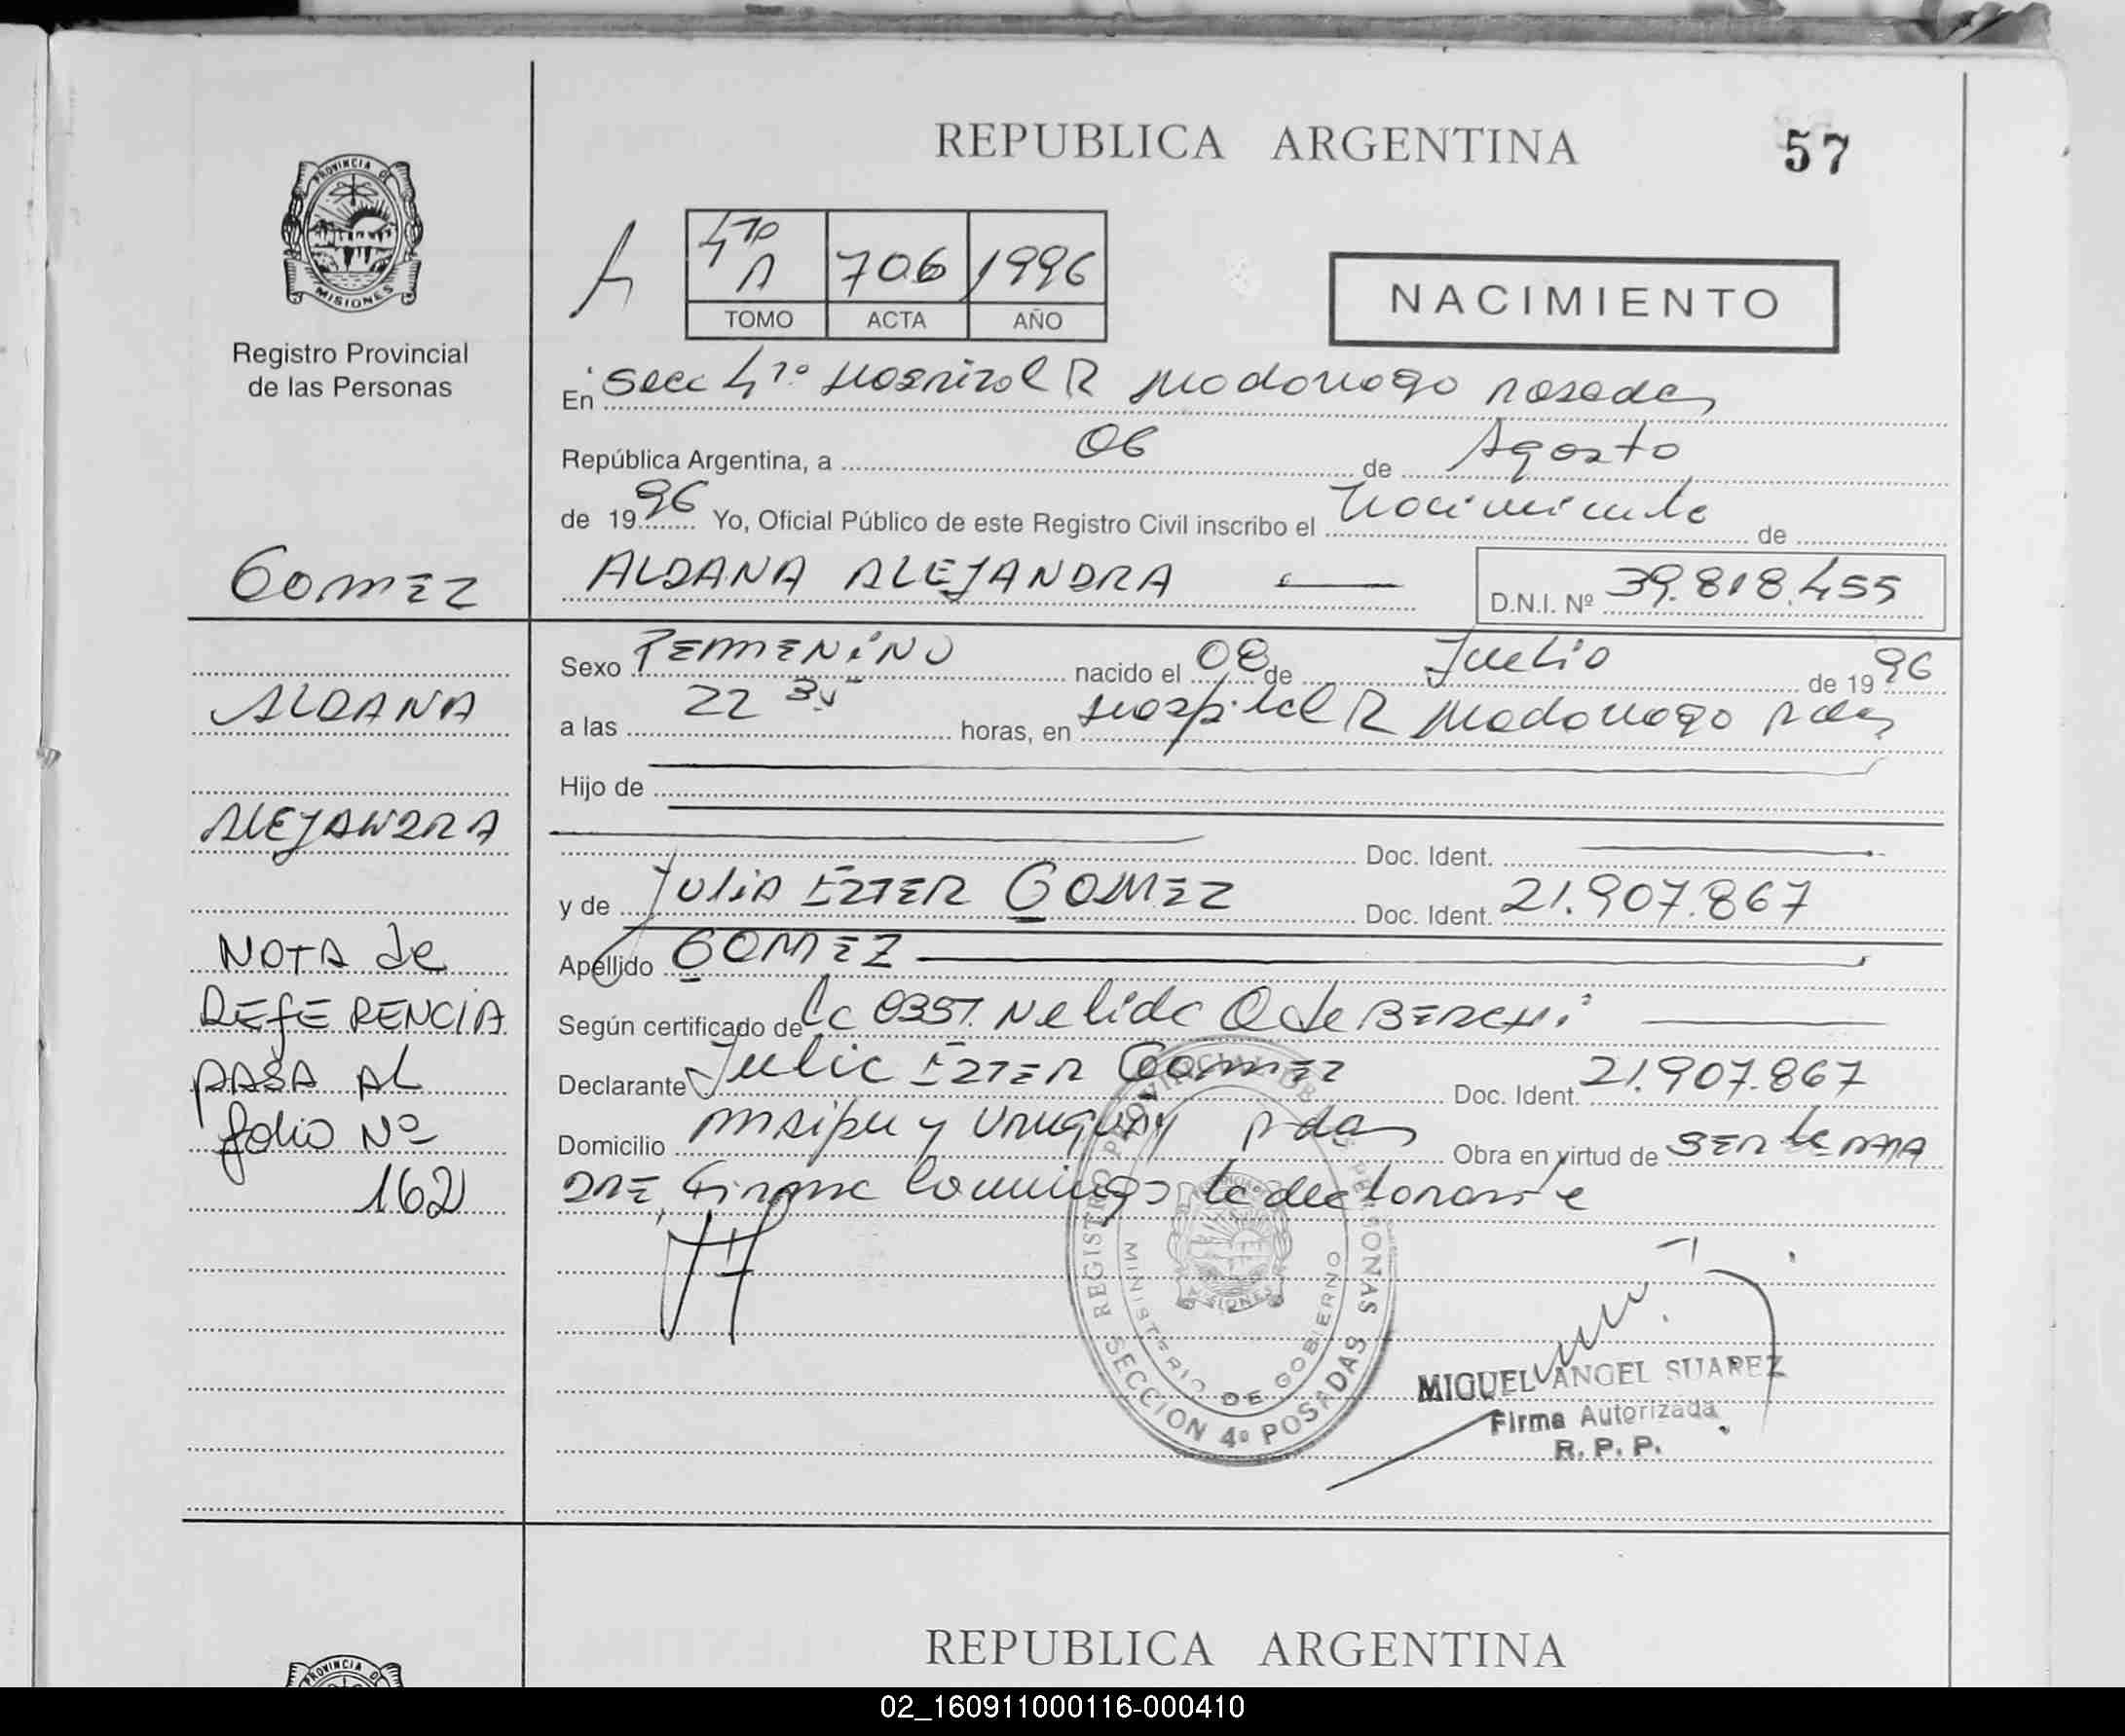 REPUBLICA ARGENTINA
57
PROVINCIA DE
MISIONES
Registro Provincial
de las Personas
4to A 706 1996
TOMO ACTA AÑO
NACIMIENTO
En Secc 4ta Hospital R Madariaga Posadas
República Argentina, a 06 de Agosto
de 1996 Yo, Oficial Público de este Registro Civil inscribo el Nacimiento de
GOMEZ
ALDANA ALEJANDRA
D.N.I. Nº 39.818.455
Sexo FEMMENINO nacido el 08 de Julio de 1996
ALDANA
a las 22 30 horas, en Hospital R Madariaga Pdas
Hijo de
ALEJANDRA
Doc. Ident.
y de JULIA ESTER GOMEZ Doc. Ident. 21.907.867
NOTA de
REFERENCIA
PASA AL
folio Nº
162
Apellido GOMEZ
Según certificado de Lc 0357 Nelida Q de BERCHI
Declarante Julia ESTER GOMEZ Doc. Ident. 21.907.867
Domicilio Maipu y Uruguay Pdas Obra en virtud de SER la MA
DRE, Firma conmigo la declarante
REGISTRO PROVINCIAL DE PERSONAS
MINISTERIO DE GOBIERNO
MISIONES
SECCION 4ª POSADAS
MIGUEL ANGEL SUAREZ
Firma Autorizada
R. P. P.
REPUBLICA ARGENTINA
PROVINCIA D
02_160911000116-000410